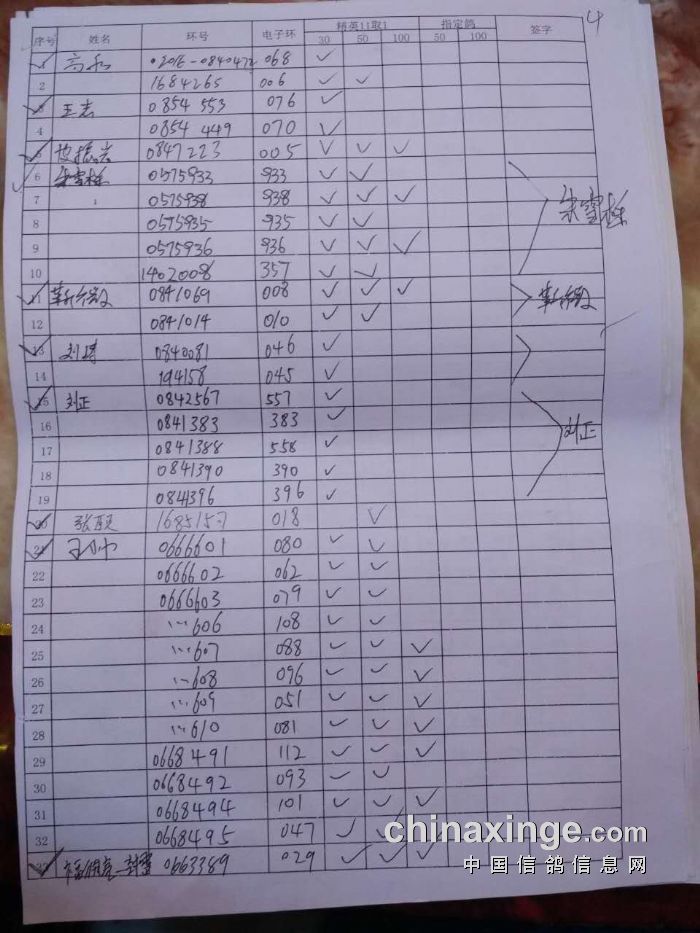 4
序号 姓名 环号 电子环 精英11取1 指定鸽 签字
30 50 100 50 100
02016-0840472 068 ✓
2 1684265 006 ✓ ✓
3 王志 0854553 076 ✓
4 0854449 070 ✓
5 0847223 005 ✓ ✓ ✓
6 朱雪栋 0575933 933 ✓ ✓
7 0575938 938 ✓ ✓ ✓ 朱雪栋
8 0575935 935 ✓ ✓
9 0575936 936 ✓ ✓ ✓
10 1402008 357 ✓ ✓
11 0841069 008 ✓ ✓ ✓
12 0841014 010 ✓ ✓
13 0840081 046 ✓
14 194158 045 ✓
15 刘正 0842567 557 ✓
16 0841383 383 ✓ 刘正
17 0841388 558 ✓
18 0841390 390 ✓
19 0841396 396 ✓
20 1685157 018 ✓
21 0666601 080 ✓ ✓
22 0666602 062 ✓ ✓
23 0666603 079 ✓ ✓
24 …606 108 ✓ ✓
25 …607 088 ✓ ✓ ✓
26 …608 096 ✓ ✓ ✓
27 …609 051 ✓ ✓ ✓
28 …610 081 ✓ ✓ ✓
29 0668491 112 ✓ ✓ ✓
30 0668492 093 ✓ ✓
31 0668494 101 ✓ ✓ ✓
32 0668495 047 ✓ ✓
33 0663389 029 ✓ ✓ ✓
chinaxinge.com
中国信鸽信息网